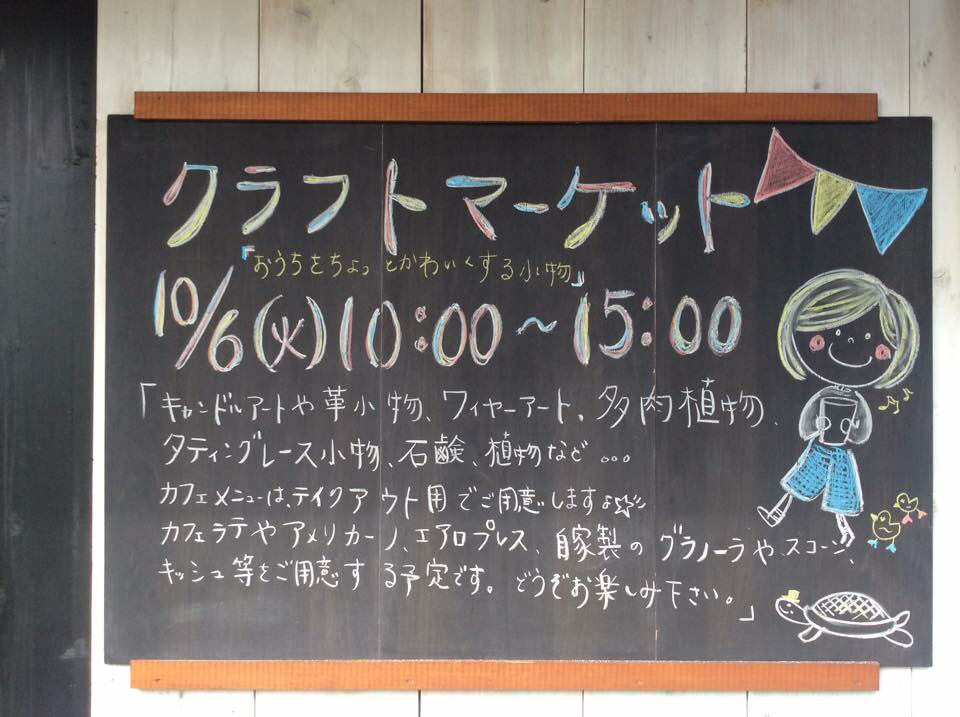 クラフトマーケット
「おうちをちょっとかわいくする小物」
10/6(火)10:00～15:00
「キャンドルアートや革小物、ワイヤーアート、多肉植物、
タティングレース小物、石鹸、植物など…
カフェメニューは、テイクアウト用でご用意しますよ☆
カフェラテやアメリカーノ、エアロプレス、自家製のグラノーラやスコーン、
キッシュ等をご用意する予定です。どうぞお楽しみ下さい。」